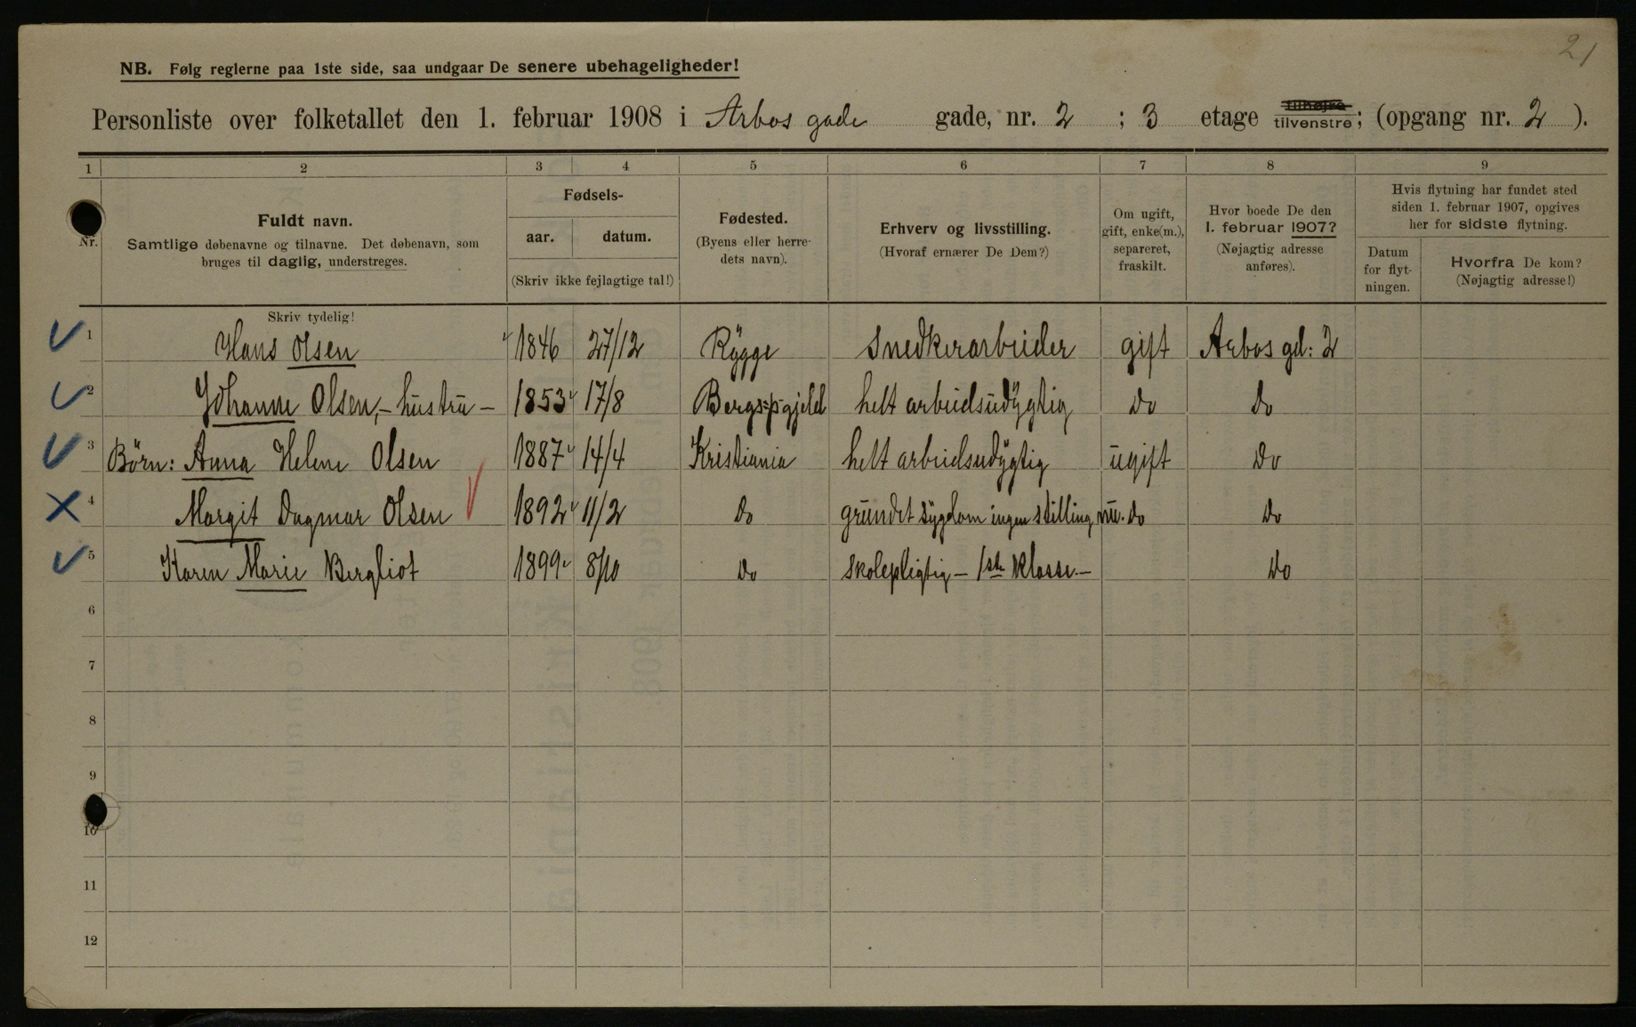 21
NB. Følg reglerne paa 1ste side, saa undgaar De senere ubehageligheder!
Personliste over folketallet den 1. februar 1908 i Arbos gade gade, nr. 2 ; 3 etage tilhøjre tilvenstre; (opgang nr. 2 ).
1 2 3 4 5 6 7 8 9
Nr.
Fuldt navn.
Samtlige døbenavne og tilnavne. Det døbenavn, som
bruges til daglig, understreges.
Fødsels-
aar. datum.
(Skriv ikke fejlagtige tal!)
Fødested.
(Byens eller herre-
dets navn).
Erhverv og livsstilling.
(Hvoraf ernærer De Dem?)
Om ugift,
gift, enke(m.),
separeret,
fraskilt.
Hvor boede De den
1. februar 1907?
(Nøjagtig adresse
anføres).
Hvis flytning har fundet sted
siden 1. februar 1907, opgives
her for sidste flytning.
Datum
for flyt-
ningen.
Hvorfra De kom?
(Nøjagtig adresse!)
Skriv tydelig!
1 Hans Olsen 1846 27/12 Rygge Snedkerarbeider gift Arbos gd: 2
2 Johanne Olsen,- hustru - 1853 17/8 Bergs-p-gjeld helt arbeidsudygtig do do
3 Børn: Anna Helene Olsen 1887 14/4 Kristiania helt arbeidsudygtig ugift do
4 Margit Dagmar Olsen 1892 11/2 do grundet sygdom ingen stilling nu. do do
5 Karen Marie Bergliot 1899 8/10 do skolepligtig - 1ste klasse - do
6
7
8
9
10
11
12